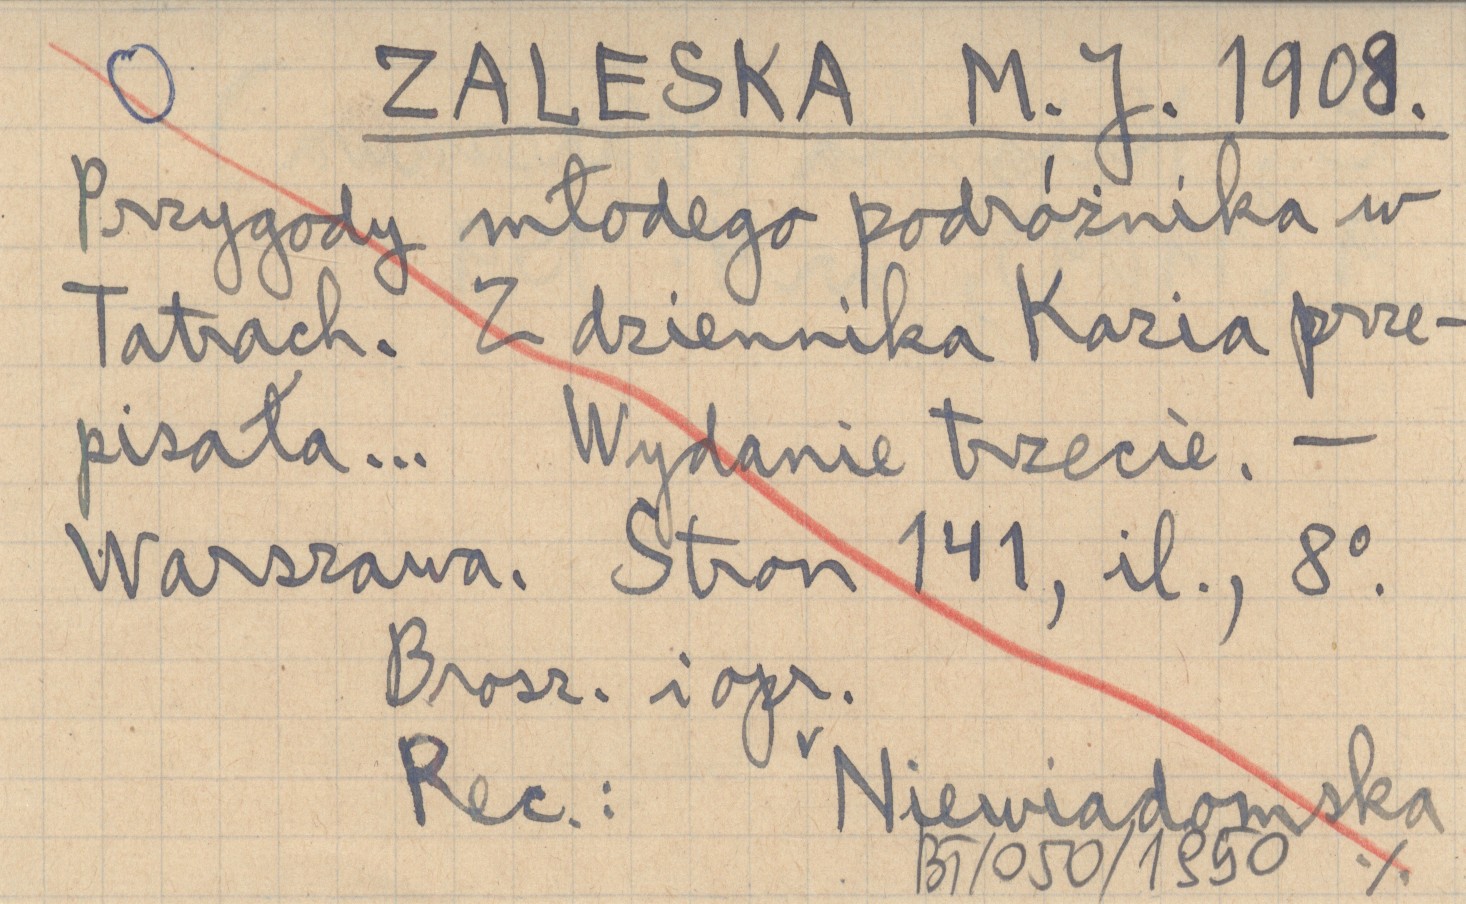 O ZALESKA M. J. 1908.
Przygody młodego podróżnika w
Tatrach. Z dziennika Kazia prze-
pisała... Wydanie trzecie. —
Warszawa. Stron 141, il., 8°.
Brosz. i opr.
Rec.: ᵛNiewiadomska
BT/050/1950 ./.